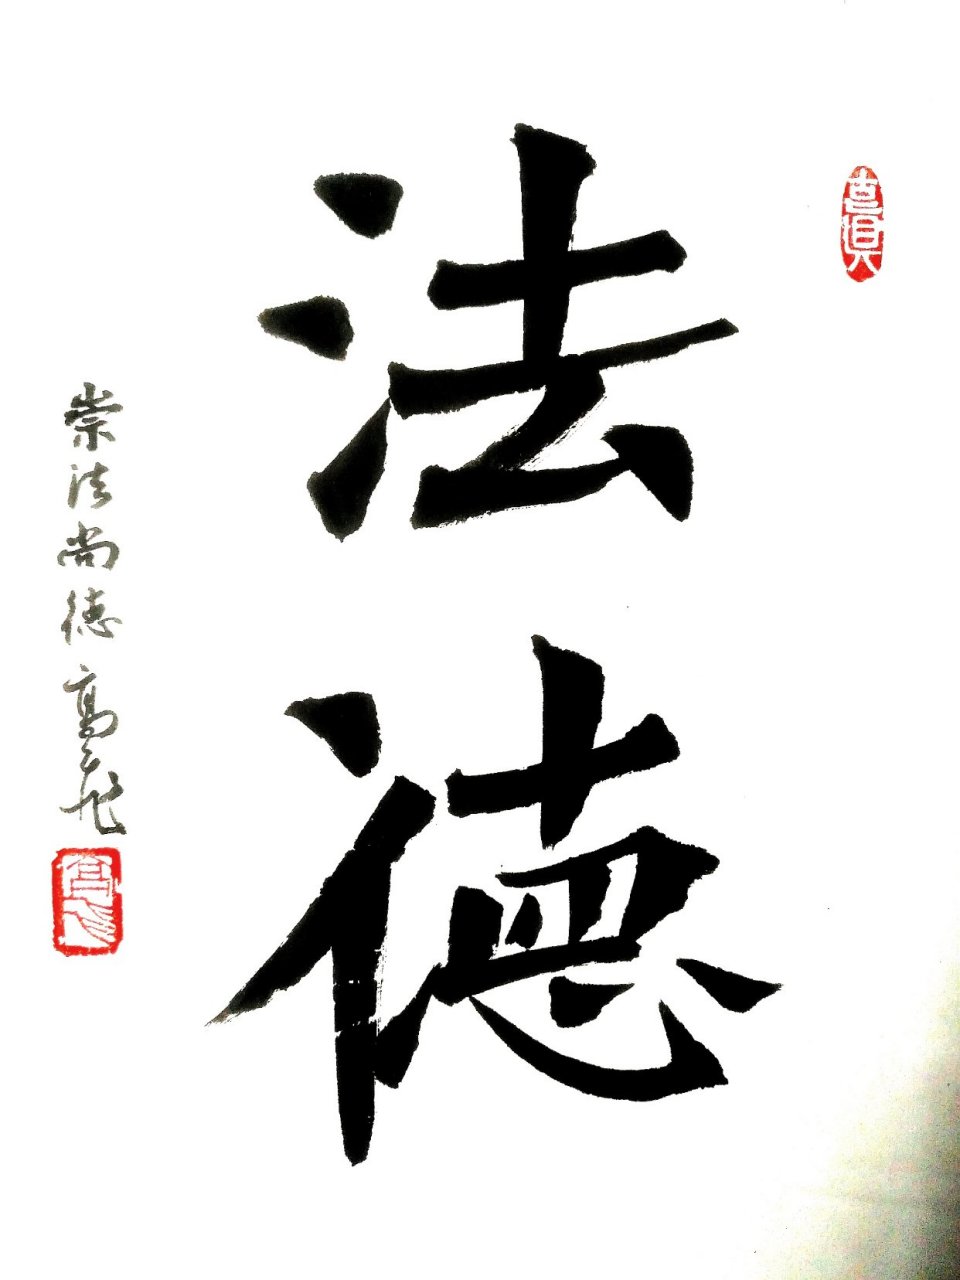 法德
崇法尚德 高飛